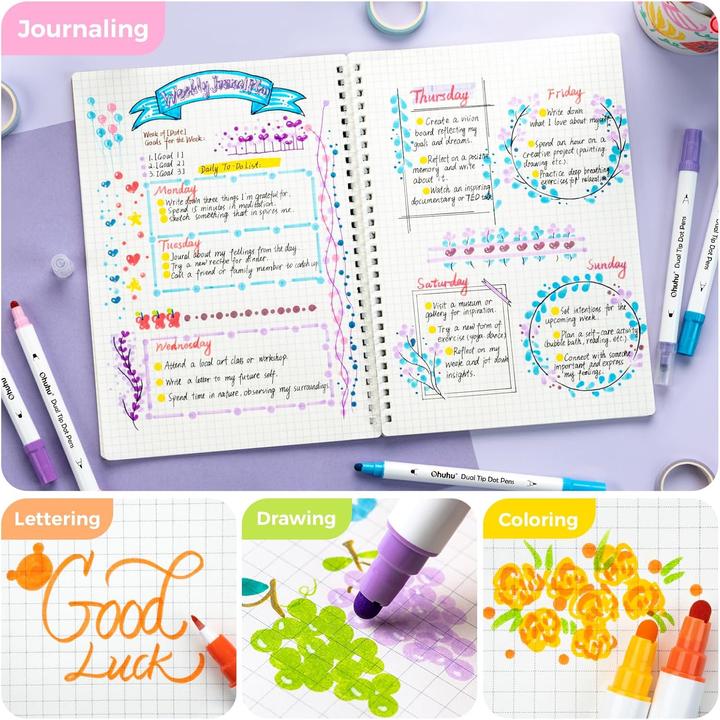 Journaling
Weekly Journal Plan
Week of [Date]
Goals for the Week:
1. [Goal 1]
2. [Goal 2]
3. [Goal 3]
Daily To-Do List:
Monday
Write down three things I'm grateful for.
Spend 15 minutes in meditation.
Sketch something that inspires me.
Tuesday
Joural about my feelings from the day
Try a new recipe for dinner.
Call a friend or family member to catch up
Wednesday
Attend a local art class or workshop.
Write a letter to my future self.
Spend time in nature, observing my surroundings
Thursday
Create a vision
board reflecting my
goals and dreams.
Reflect on a positive
memory and write
about it.
Watch an inspiring
documentary or TED talk
Friday
Write down
what I love about myself
Spend an hour on a
creative project (painting,
drawing, etc.).
Practice deep breathing
exercises for relaxation
Saturday
Visit a museum or
gallery for inspiration.
Try a new form of
exercise (yoga, dance)
Reflect on my
week and jot down
insights.
Sunday
Set intentions for the
upcoming week.
Plan a self-care activity
(bubble bath, reading, etc.)
Connect with someone
important and express
my feelings.
Ohuhu Dual Tip Dot Pens
Ohuhu Dual Tip Dot Pens
Dual Tip Dot Pens
Ohuhu
Ohuhu Dual Tip Dot Pens
Lettering
Good
Luck
Drawing
Coloring